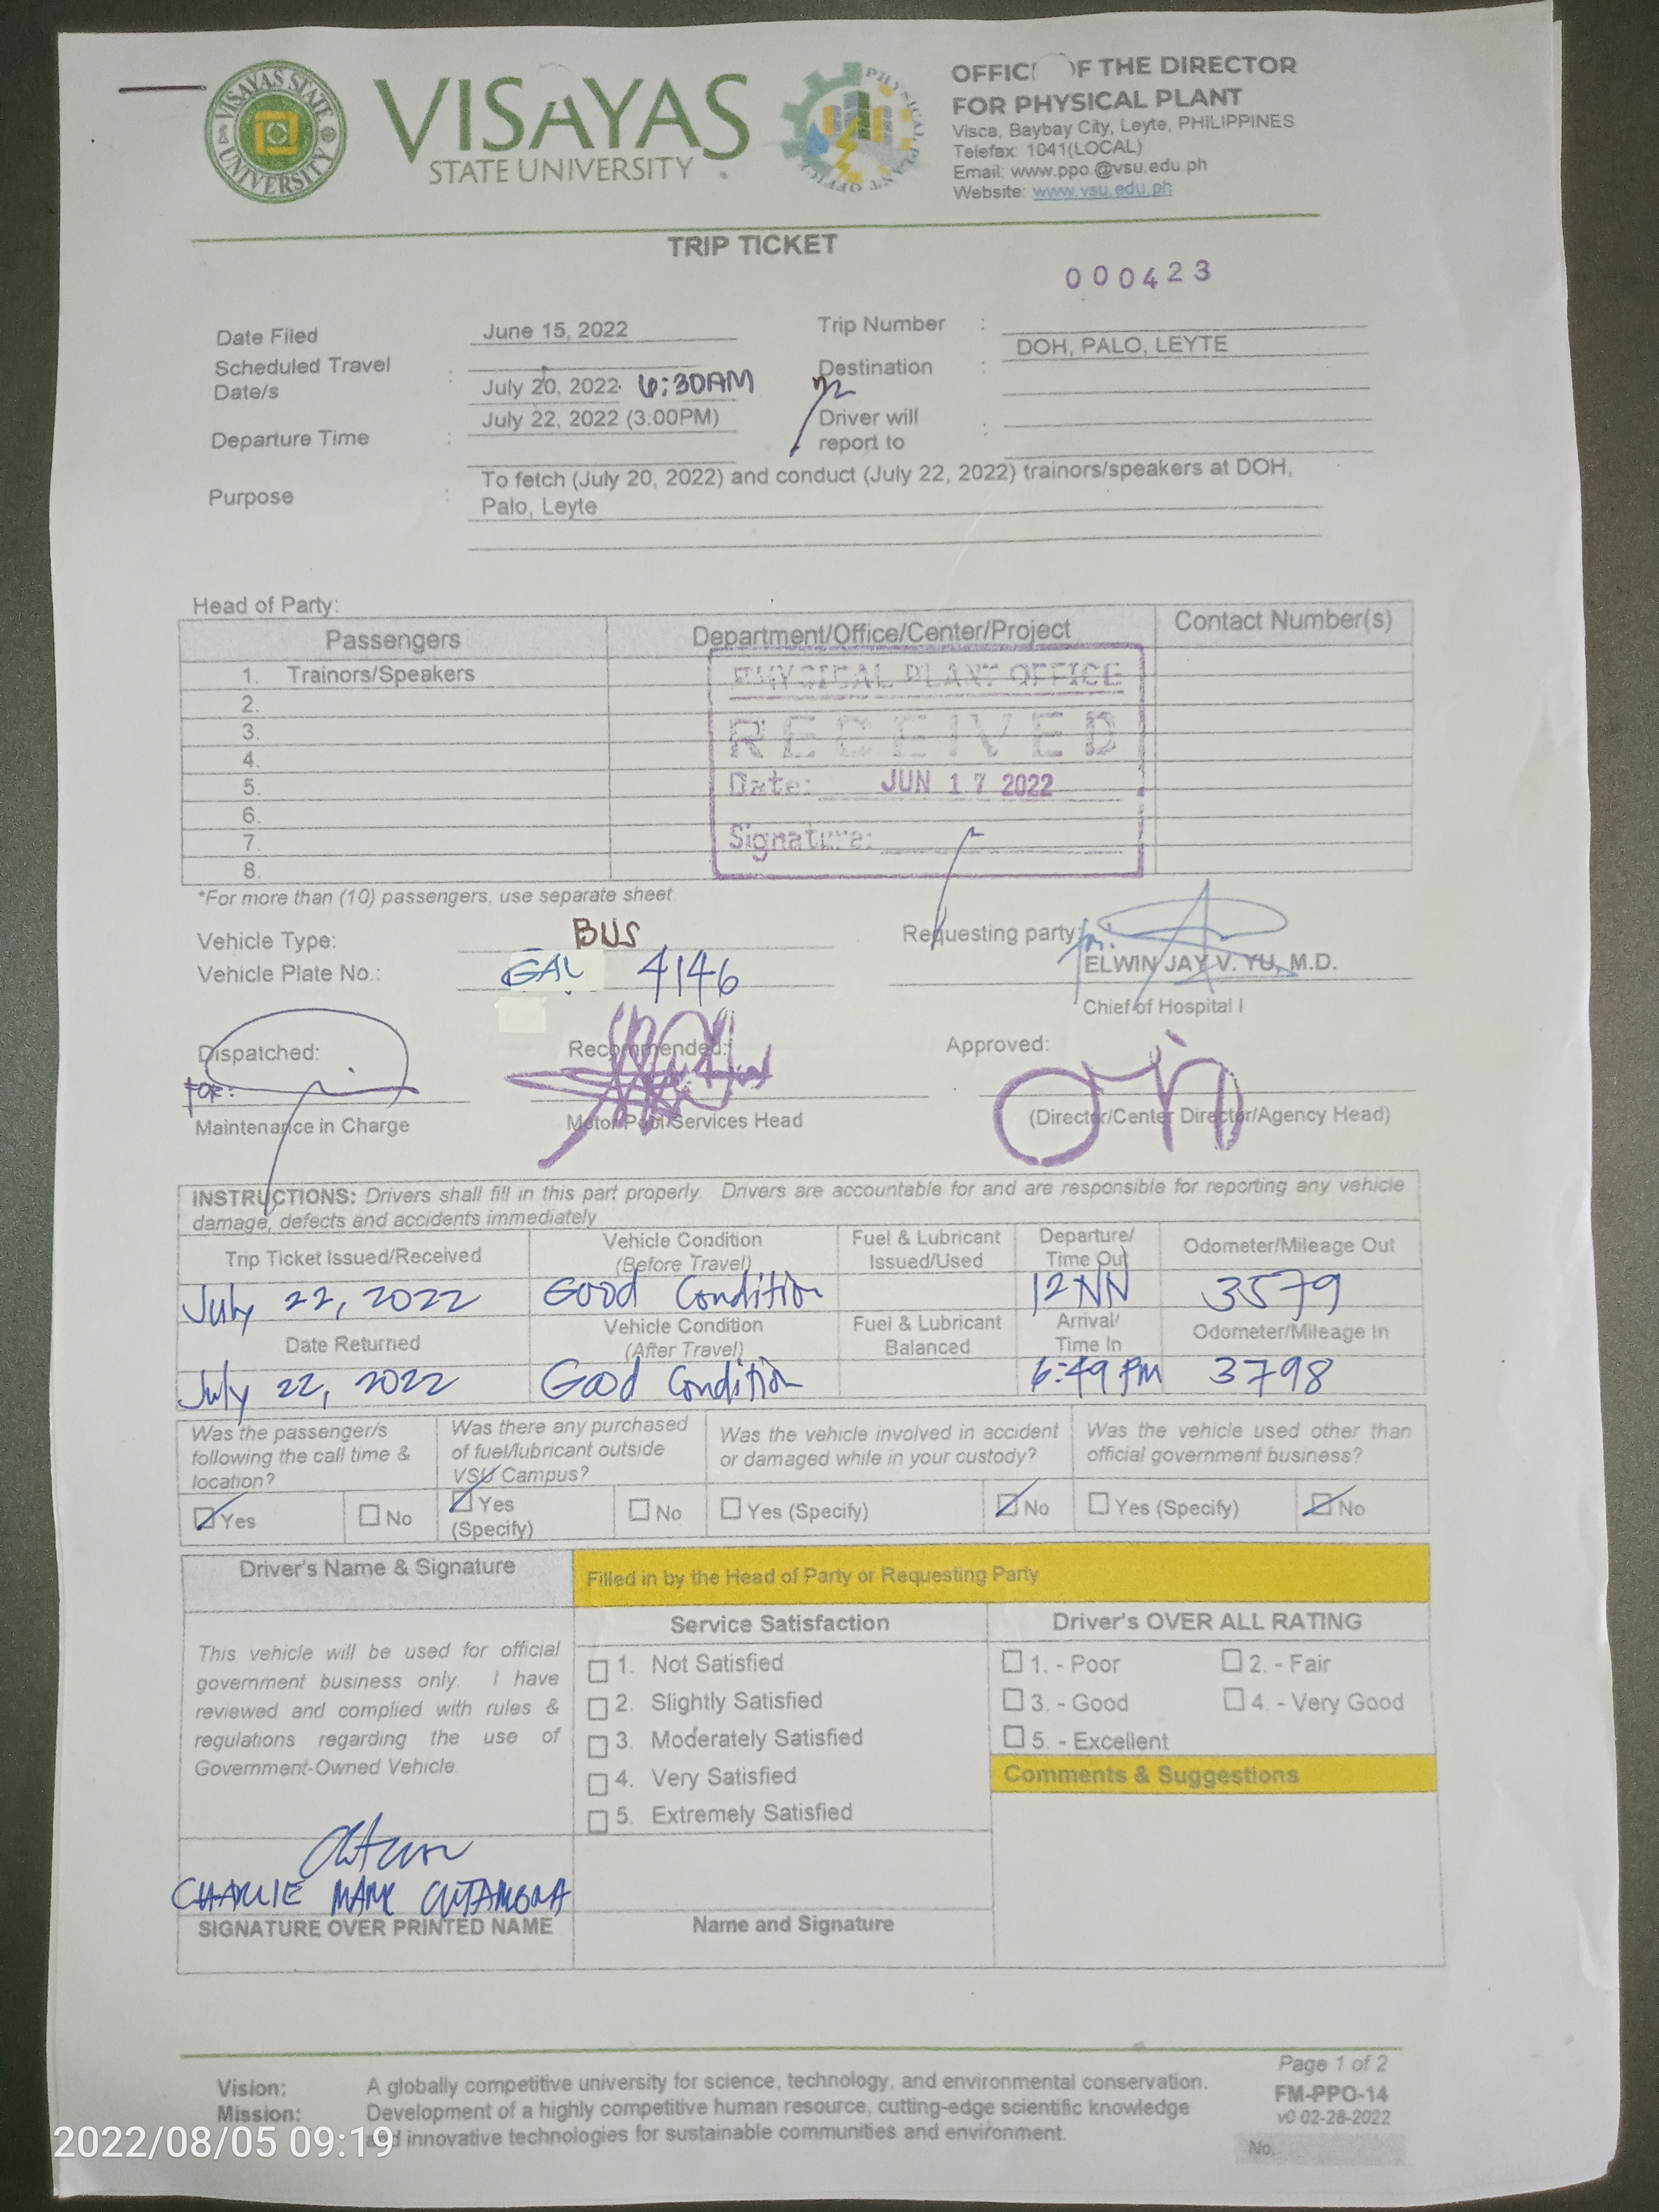 VISAYAS STATE UNIVERSITY
VISAYAS
STATE UNIVERSITY
PHYSICAL PLANT OFFICE
OFFIC F THE DIRECTOR
FOR PHYSICAL PLANT
Visca, Baybay City, Leyte, PHILIPPINES
Telefax: 1041(LOCAL)
Email: www.ppo.@vsu.edu.ph
Website: www.vsu.edu.ph
TRIP TICKET
000423
Date Filed June 15, 2022 Trip Number :
Scheduled Travel Date/s : July 20, 2022 6:30AM Destination : DOH, PALO, LEYTE
Departure Time : July 22, 2022 (3:00PM) Driver will report to :
Purpose : To fetch (July 20, 2022) and conduct (July 22, 2022) trainors/speakers at DOH,
Palo, Leyte
Head of Party:
Passengers Department/Office/Center/Project Contact Number(s)
1. Trainors/Speakers
2.
3.
4.
5.
6.
7.
8.
PHYSICAL PLANT OFFICE
RECEIVED
Date: JUN 17 2022
Signature:
*For more than (10) passengers, use separate sheet
Vehicle Type: BUS Requesting party
Vehicle Plate No.: GAL 4146 for: ELWIN JAY V. YU, M.D.
Chief of Hospital I
Dispatched: Recommended: Approved:
FOR:
Maintenance in Charge Motor Pool Services Head (Director/Center Director/Agency Head)
INSTRUCTIONS: Drivers shall fill in this part properly. Drivers are accountable for and are responsible for reporting any vehicle
damage, defects and accidents immediately
Trip Ticket Issued/Received Vehicle Condition (Before Travel) Fuel & Lubricant Issued/Used Departure/ Time Out Odometer/Mileage Out
July 22, 2022 Good Condition 12NN 3579
Date Returned Vehicle Condition (After Travel) Fuel & Lubricant Balanced Arrival/ Time In Odometer/Mileage In
July 22, 2022 Good Condition 6:49 PM 3798
Was the passenger/s following the call time & location? Was there any purchased of fuel/lubricant outside VSU Campus? Was the vehicle involved in accident or damaged while in your custody? Was the vehicle used other than official government business?
Yes No Yes (Specify) No Yes (Specify) No Yes (Specify) No
Driver's Name & Signature Filled in by the Head of Party or Requesting Party
This vehicle will be used for official
government business only. I have
reviewed and complied with rules &
regulations regarding the use of
Government-Owned Vehicle.
CHARLIE MARK CUTAMORA
SIGNATURE OVER PRINTED NAME
Service Satisfaction
1. Not Satisfied
2. Slightly Satisfied
3. Moderately Satisfied
4. Very Satisfied
5. Extremely Satisfied
Name and Signature
Driver's OVER ALL RATING
1. - Poor 2. - Fair
3. - Good 4. - Very Good
5. - Excellent
Comments & Suggestions
Vision: A globally competitive university for science, technology, and environmental conservation.
Mission: Development of a highly competitive human resource, cutting-edge scientific knowledge
and innovative technologies for sustainable communities and environment.
Page 1 of 2
FM-PPO-14
v0 02-28-2022
No.
2022/08/05 09:19